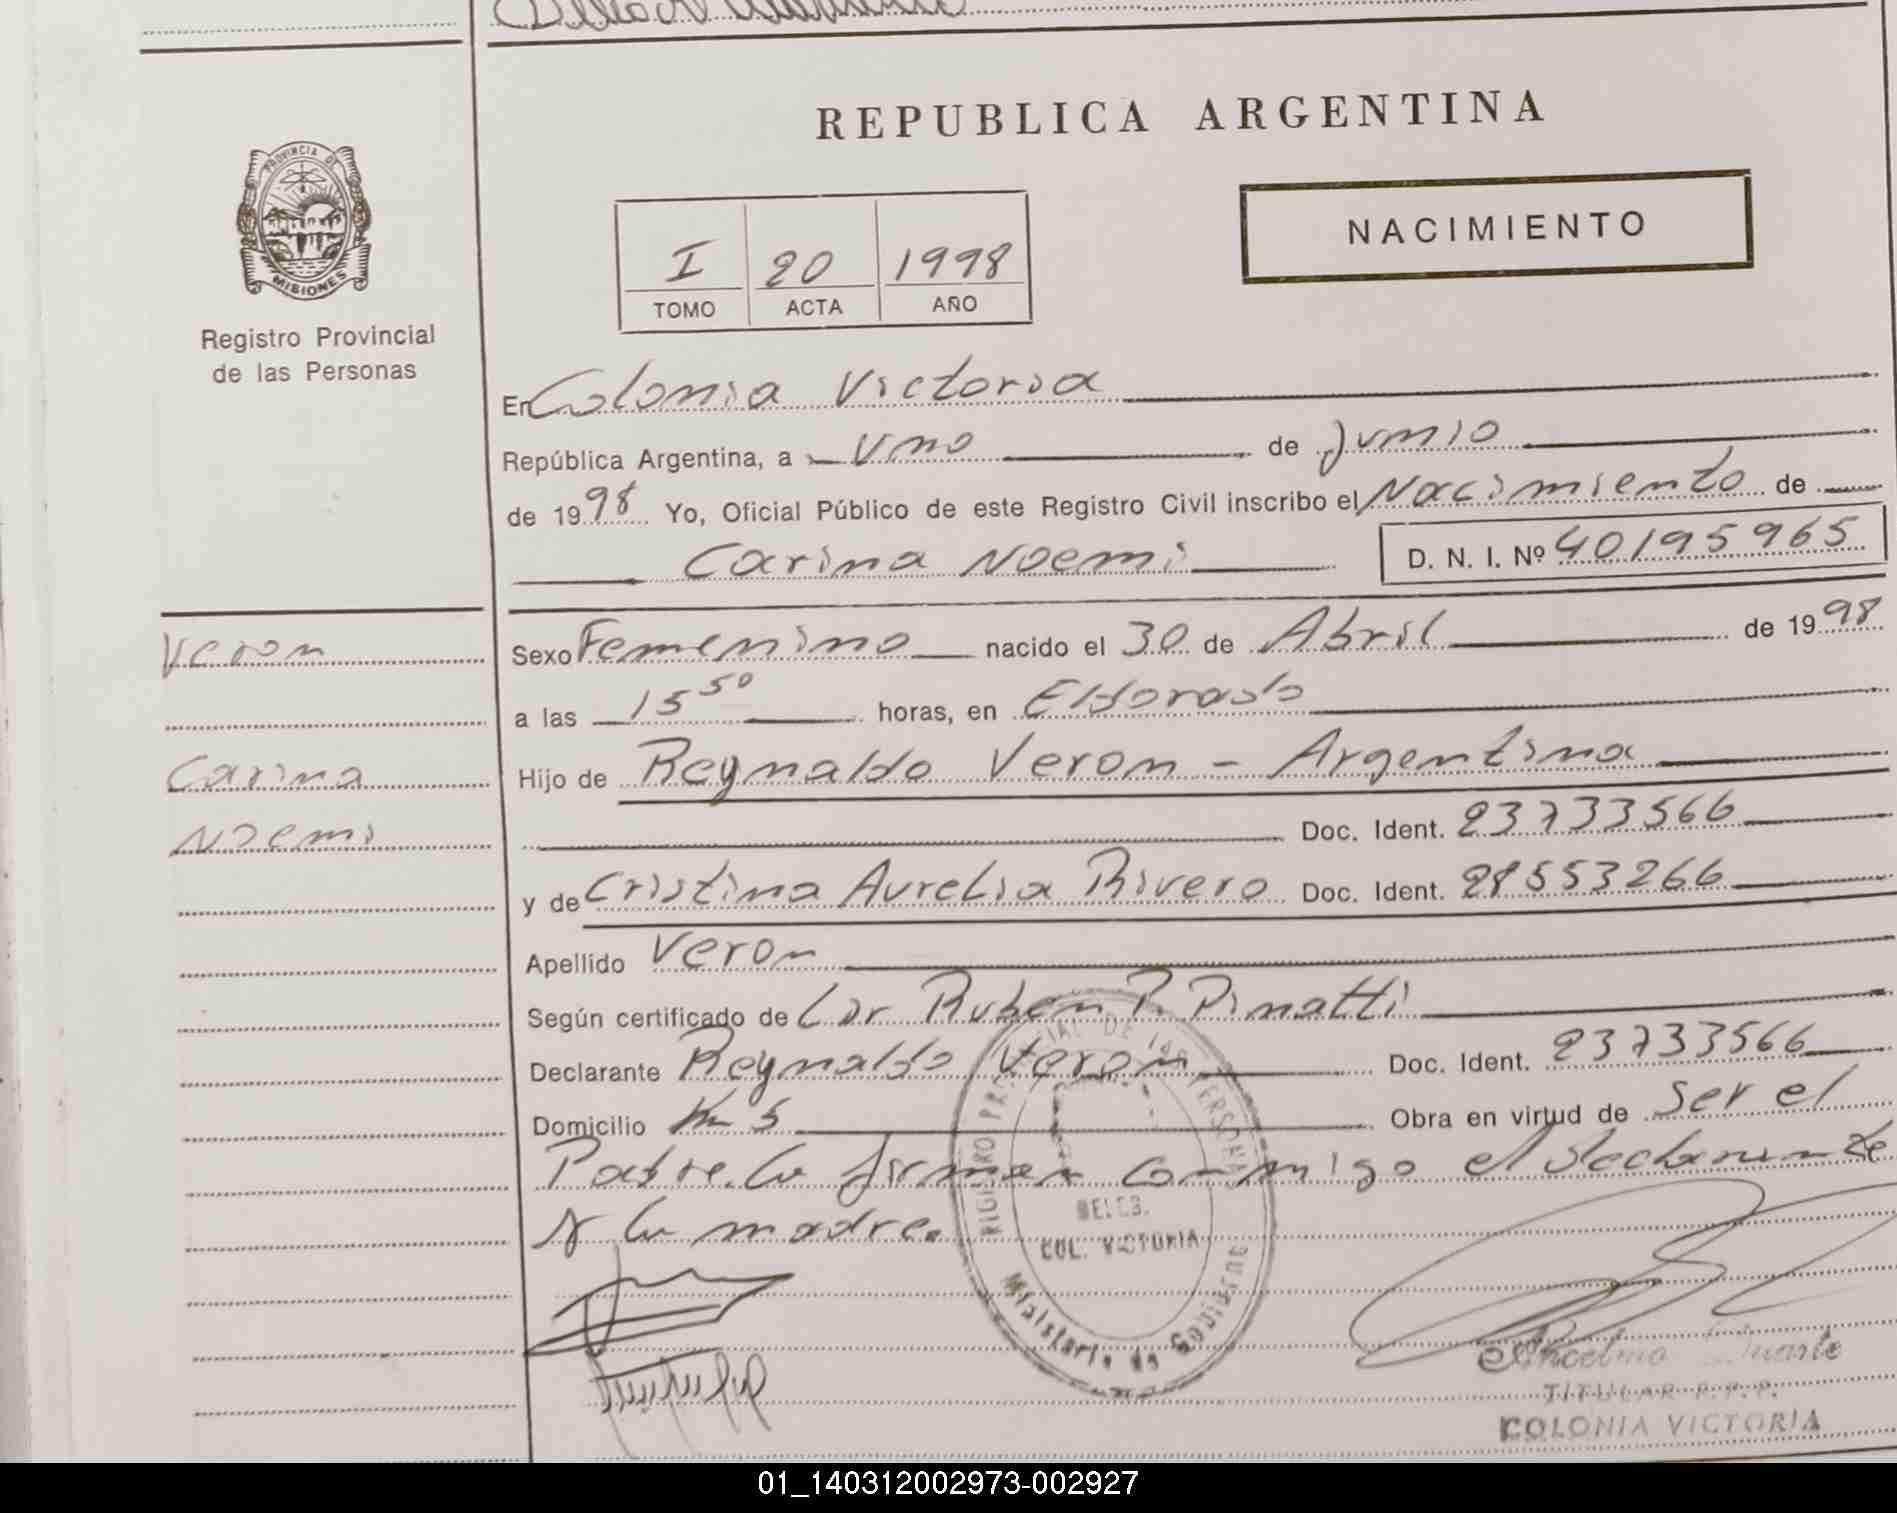 REPUBLICA ARGENTINA
PROVINCIA DE
MISIONES
Registro Provincial
de las Personas
I 20 1998
TOMO ACTA AÑO
NACIMIENTO
En Colonia Victoria
República Argentina, a Uno de Junio
de 1998 Yo, Oficial Público de este Registro Civil inscribo el Nacimiento de
Carina Noemi D. N. I. Nº 40195965
Veron
Carina
Noemi
Sexo Femenino nacido el 30 de Abril de 1998
a las 15 50 horas, en Eldorado
Hijo de Reynaldo Veron - Argentina
Doc. Ident. 23733566
y de Cristina Aurelia Rivero Doc. Ident. 28553266
Apellido Veron
Según certificado de Ruben P. Pinatti
Declarante Reynaldo Veron Doc. Ident. 23733566
Domicilio Km 5 Obra en virtud de ser el
Padre. Lo firman conmigo el declarante
y la madre.
REGISTRO PROVINCIAL DE LAS PERSONAS
DELEG.
COL. VICTORIA
Ministerio de Gobierno
Ancelmo Duarte
TITULAR R.P.P.
COLONIA VICTORIA
01_140312002973-002927